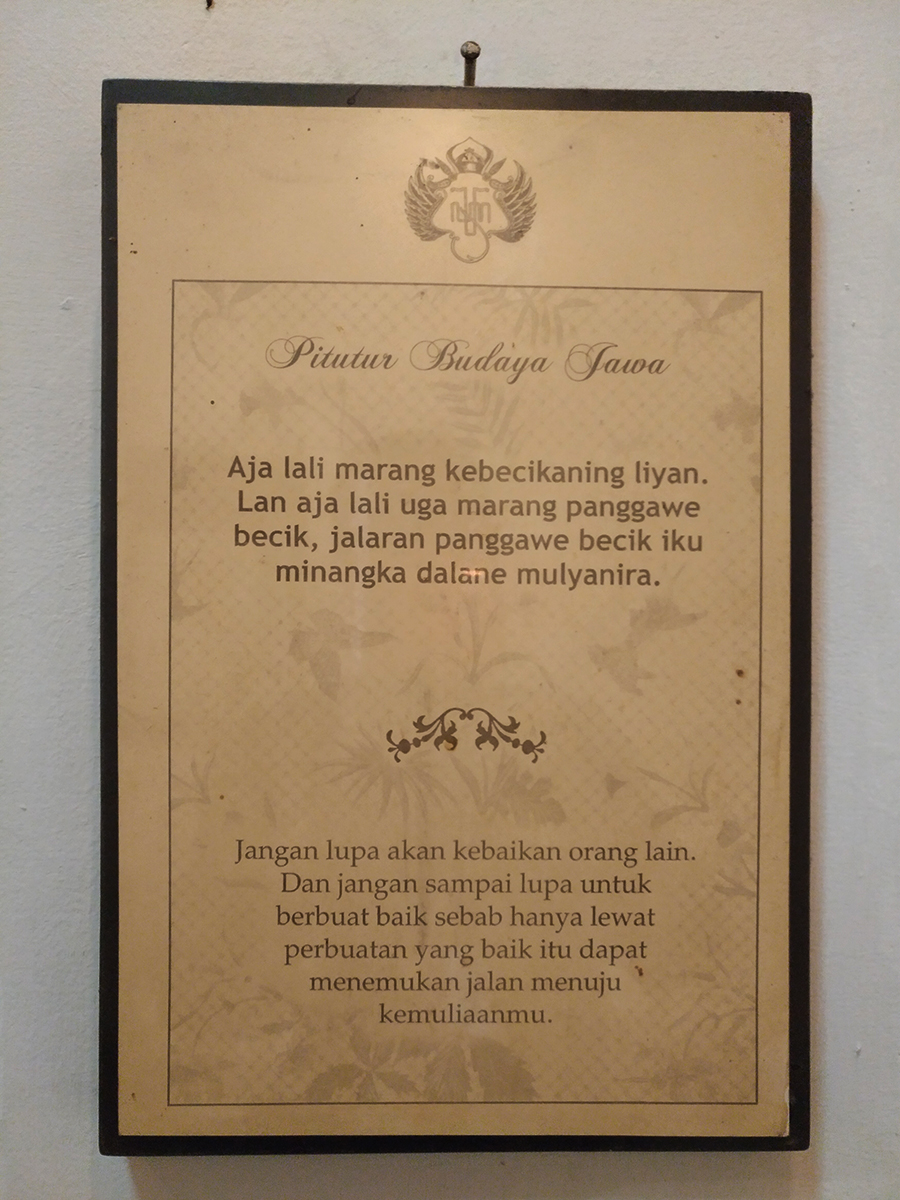 Pitutur Budaya Jawa
Aja lali marang kebecikaning liyan.
Lan aja lali uga marang panggawe
becik, jalaran panggawe becik iku
minangka dalane mulyanira.
Jangan lupa akan kebaikan orang lain.
Dan jangan sampai lupa untuk
berbuat baik sebab hanya lewat
perbuatan yang baik itu dapat
menemukan jalan menuju
kemuliaanmu.